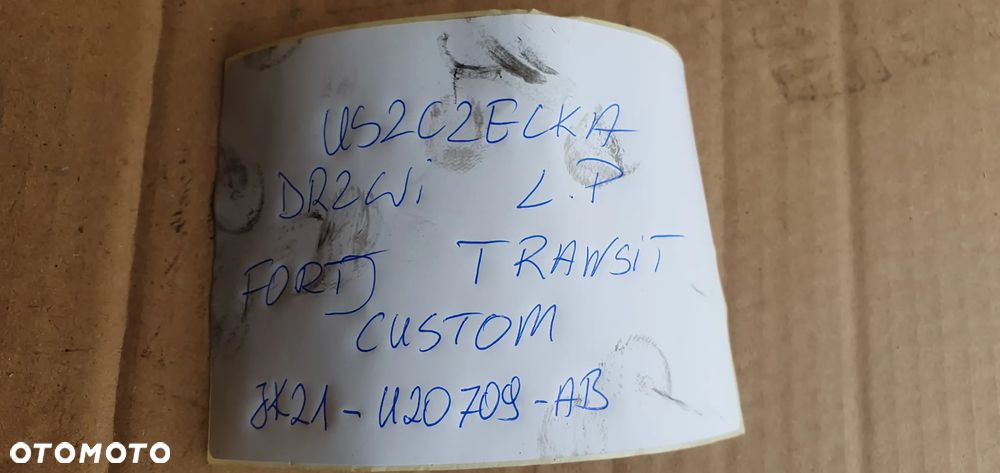 USZCZECKA
DRZWI L.P
FORD TRANSIT
CUSTOM
JK21-U20709-AB
OTOMOTO